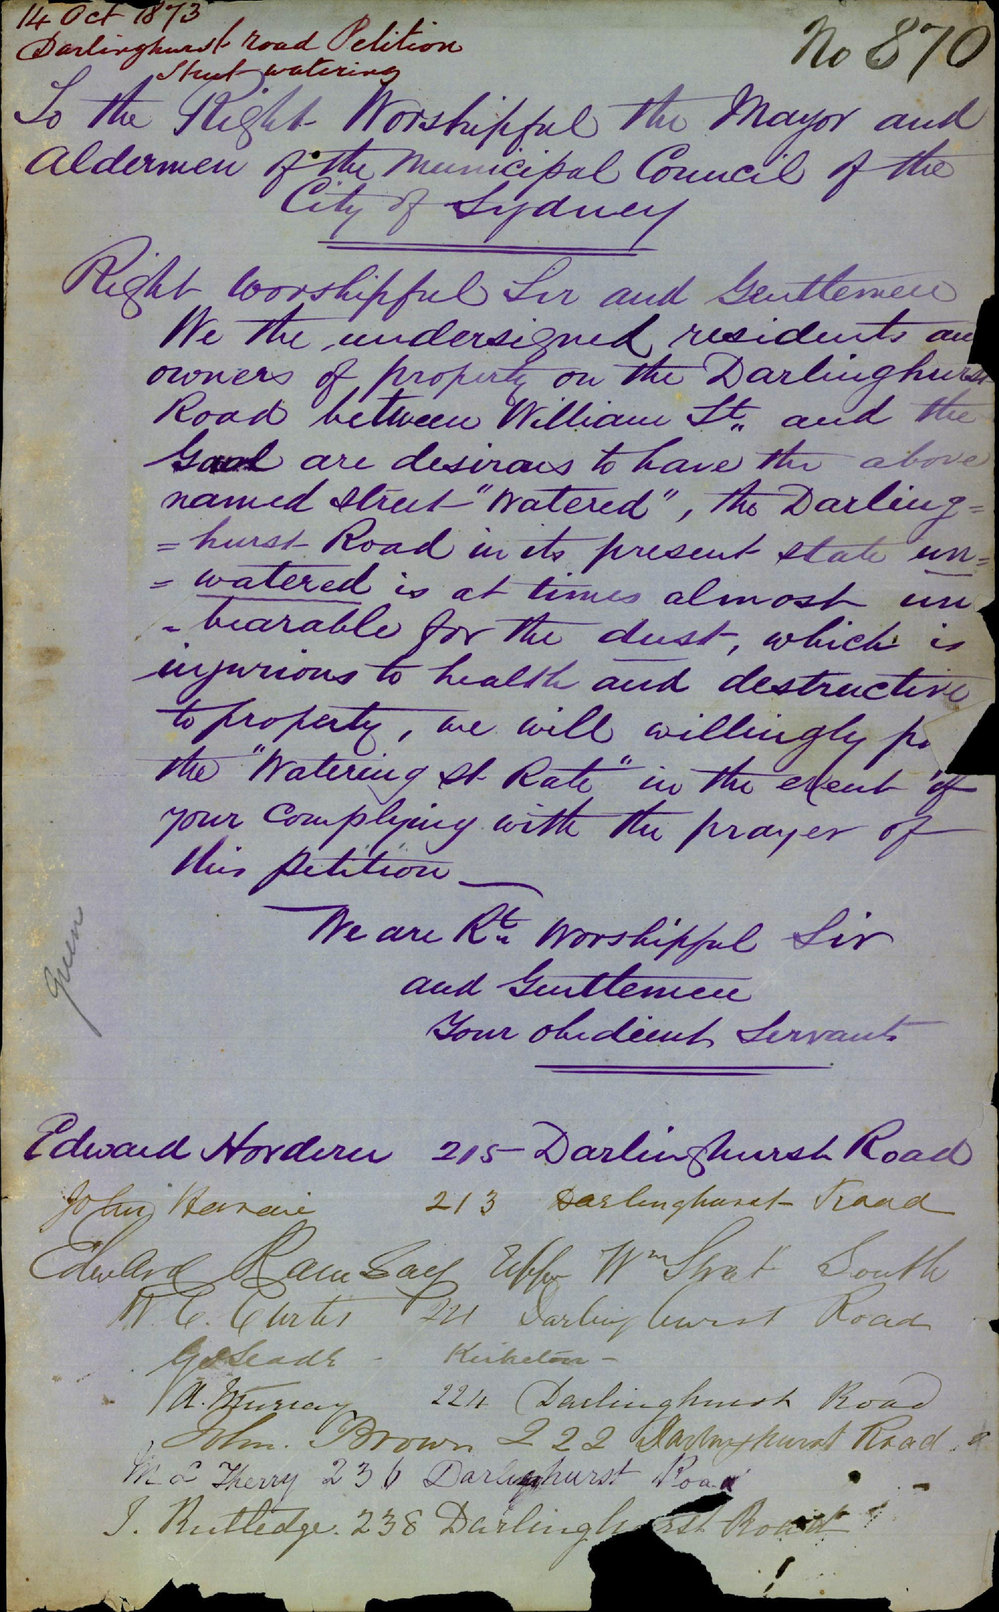 14 Oct 1873
Darlinghurst road Petition
Street watering
No 870
To the Right Worshipful the Mayor and
Aldermen of the Municipal Council of the
City of Sydney
Right Worshipful Sir and Gentlemen
We the undersigned residents an
owners of property on the Darlinghurst
Road between William St. and the
Gaol are desirous to have the above
named street "Watered", the Darling=
=hurst Road in its present state un=
=watered is at times almost un
=bearable for the dust, which is
injurious to health and destructive
to property, we will willingly pa
the "Watering St Rate" in the event of
your complying with the prayer of
this petition
We are Rt. Worshipful Sir
and Gentlemen
Your obedient Servants
green
Edward Hordern 215 Darlinghurst Road
John 213 Darlinghurst Road
Edward Ramsay Upper Wm Street South
W. C. Curtis Darlinghurst Road
Kirketon
A. Murray 224 Darlinghurst Road
John Brown 222 Darlinghurst Road
Therry 236 Darlinghurst Road
J. Rutledge. 238 Darlinghurst Road